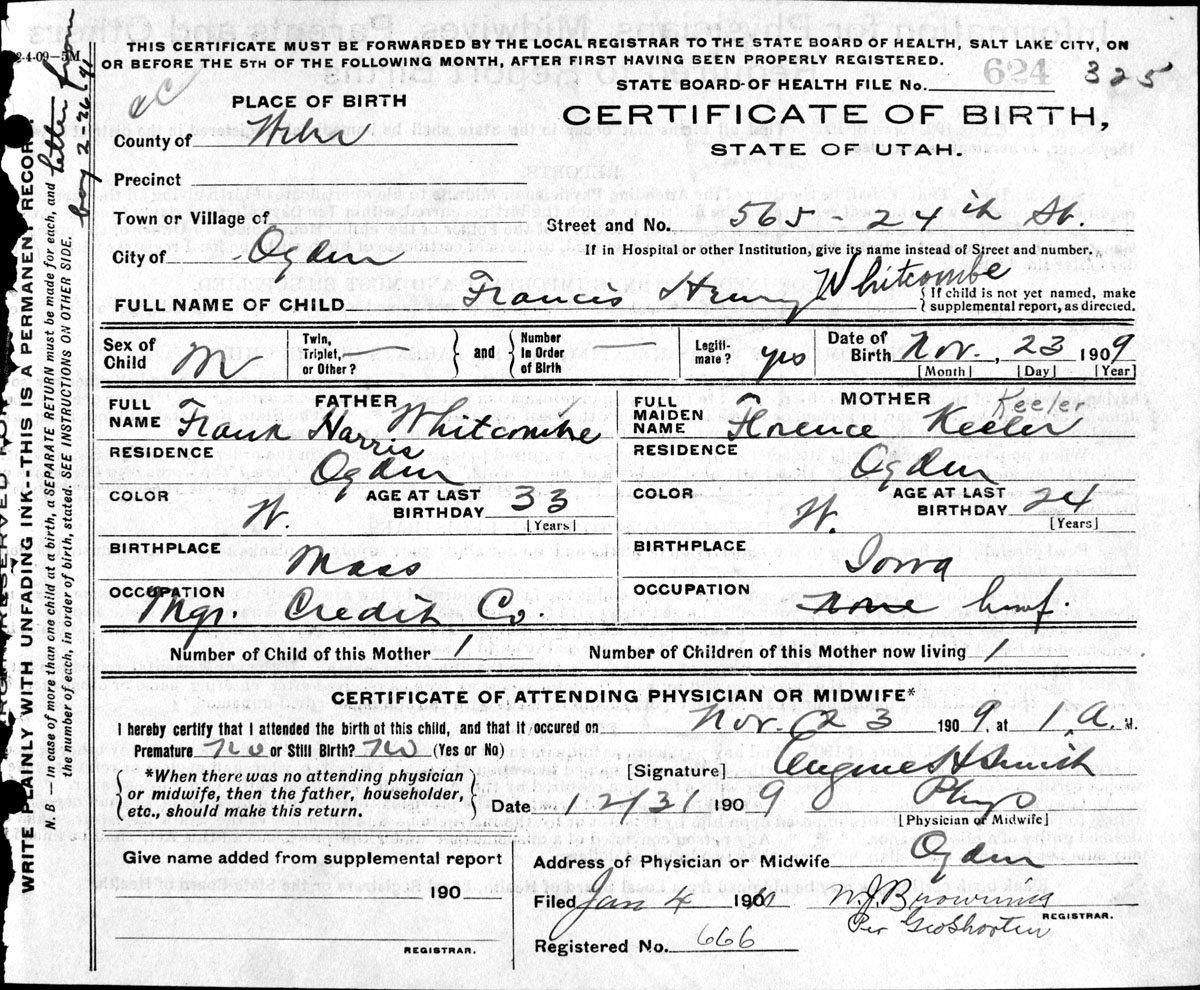 2-4-09—5M
THIS CERTIFICATE MUST BE FORWARDED BY THE LOCAL REGISTRAR TO THE STATE BOARD OF HEALTH, SALT LAKE CITY, ON
OR BEFORE THE 5TH OF THE FOLLOWING MONTH, AFTER FIRST HAVING BEEN PROPERLY REGISTERED.
624 325
STATE BOARD OF HEALTH FILE No.
PLACE OF BIRTH
CERTIFICATE OF BIRTH,
STATE OF UTAH.
County of Weber
Precinct
Town or Village of
Street and No. 565 - 24th St.
City of Ogden
If in Hospital or other Institution, give its name instead of Street and number.
FULL NAME OF CHILD Francis Henry Whitcombe
If child is not yet named, make
supplemental report, as directed.
Sex of Child M
Twin, Triplet, or Other? —
and
Number in Order of Birth —
Legiti- mate? yes
Date of Birth Nov. , 23 1909
[Month] [Day] [Year]
FATHER
FULL NAME Frank Harris Whitcombe
RESIDENCE Ogden
COLOR W.
AGE AT LAST BIRTHDAY 33
[Years]
BIRTHPLACE Mass
OCCUPATION Mgr. Credit Co.
MOTHER
FULL MAIDEN NAME Florence Keeler Keeler
RESIDENCE Ogden
COLOR W.
AGE AT LAST BIRTHDAY 24
[Years]
BIRTHPLACE Iowa
OCCUPATION none hswf.
Number of Child of this Mother 1
Number of Children of this Mother now living 1
CERTIFICATE OF ATTENDING PHYSICIAN OR MIDWIFE*
I hereby certify that I attended the birth of this child, and that it occured on Nov. 23 1909, at 1 A. M.
Premature No or Still Birth? No (Yes or No)
*When there was no attending physician
or midwife, then the father, householder,
etc., should make this return.
[Signature] Eugene H Smith
Date 12/31 1909 Phys
[Physician or Midwife]
Give name added from supplemental report
190
REGISTRAR.
Address of Physician or Midwife Ogden
Filed Jan 4 190 W. J. Browning
REGISTRAR.
Per Geo Shorten
Registered No. 666
WRITE PLAINLY WITH UNFADING INK—THIS IS A PERMANENT RECORD.
N. B.—In case of more than one child at a birth, a SEPARATE RETURN must be made for each, and
the number of each, in order of birth, stated. SEE INSTRUCTIONS ON OTHER SIDE.
letter from
boy 2/26/41